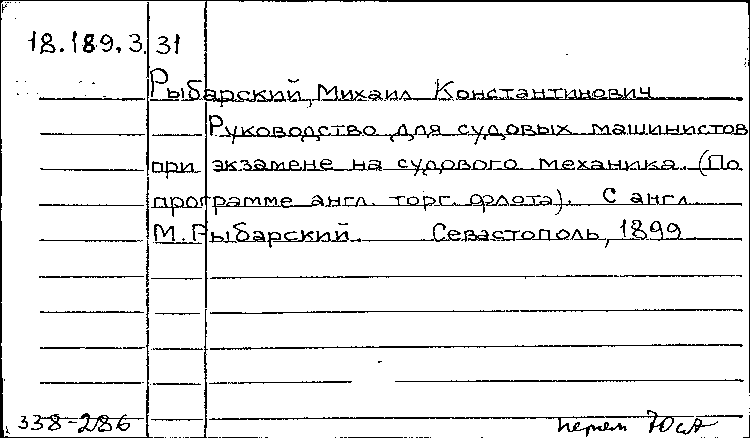 18.189.3.31
Рыбарский, Михаил Константинович
Руководство для судовых машинистов
при экзамене на судового механика. (По
программе англ. торг. флота). С англ.
М. Рыбарский. Севастополь, 1899
338-286